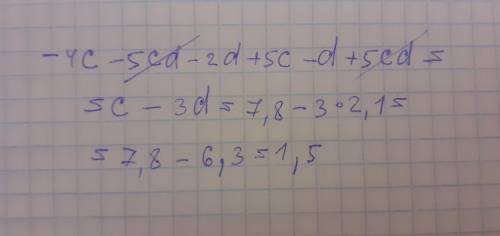 -4c -5cd -2d +5c -d +5cd =
= c - 3d = 7,8 - 3 • 2,1 =
= 7,8 - 6,3 = 1,5